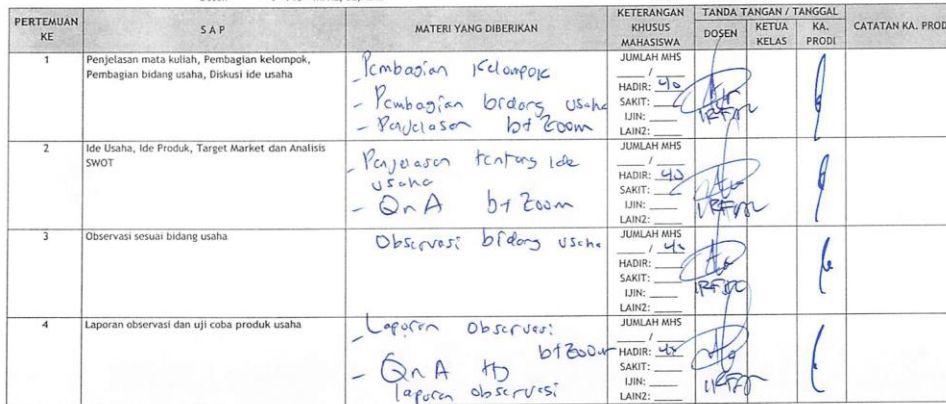 PERTEMUAN KE
S A P
MATERI YANG DIBERIKAN
KETERANGAN KHUSUS MAHASISWA
TANDA TANGAN / TANGGAL
DOSEN
KETUA KELAS
KA. PRODI
CATATAN KA. PROD
1
Penjelasan mata kuliah, Pembagian kelompok,
Pembagian bidang usaha, Diskusi ide usaha
- Pembagian Kelompok
- Pembagian bidang usaha
- Penjelasan b+ Zoom
JUMLAH MHS
____ / ____
HADIR: 40
SAKIT: ____
IJIN: ____
LAIN2: ____
IRFAN
2
Ide Usaha, Ide Produk, Target Market dan Analisis
SWOT
- Penjelasan tentang ide
usaha
- QnA b+ Zoom
JUMLAH MHS
____ / ____
HADIR: 40
SAKIT: ____
IJIN: ____
LAIN2: ____
IRFAN
3
Observasi sesuai bidang usaha
Observasi bidang usaha
JUMLAH MHS
HADIR: ____
SAKIT: ____
IJIN: ____
LAIN2: ____
IRFAN
4
Laporan observasi dan uji coba produk usaha
- Laporan Observasi
b+ Zoom
- QnA
laporan observasi
JUMLAH MHS
____ / ____
HADIR:
SAKIT: ____
IJIN: ____
LAIN2: ____